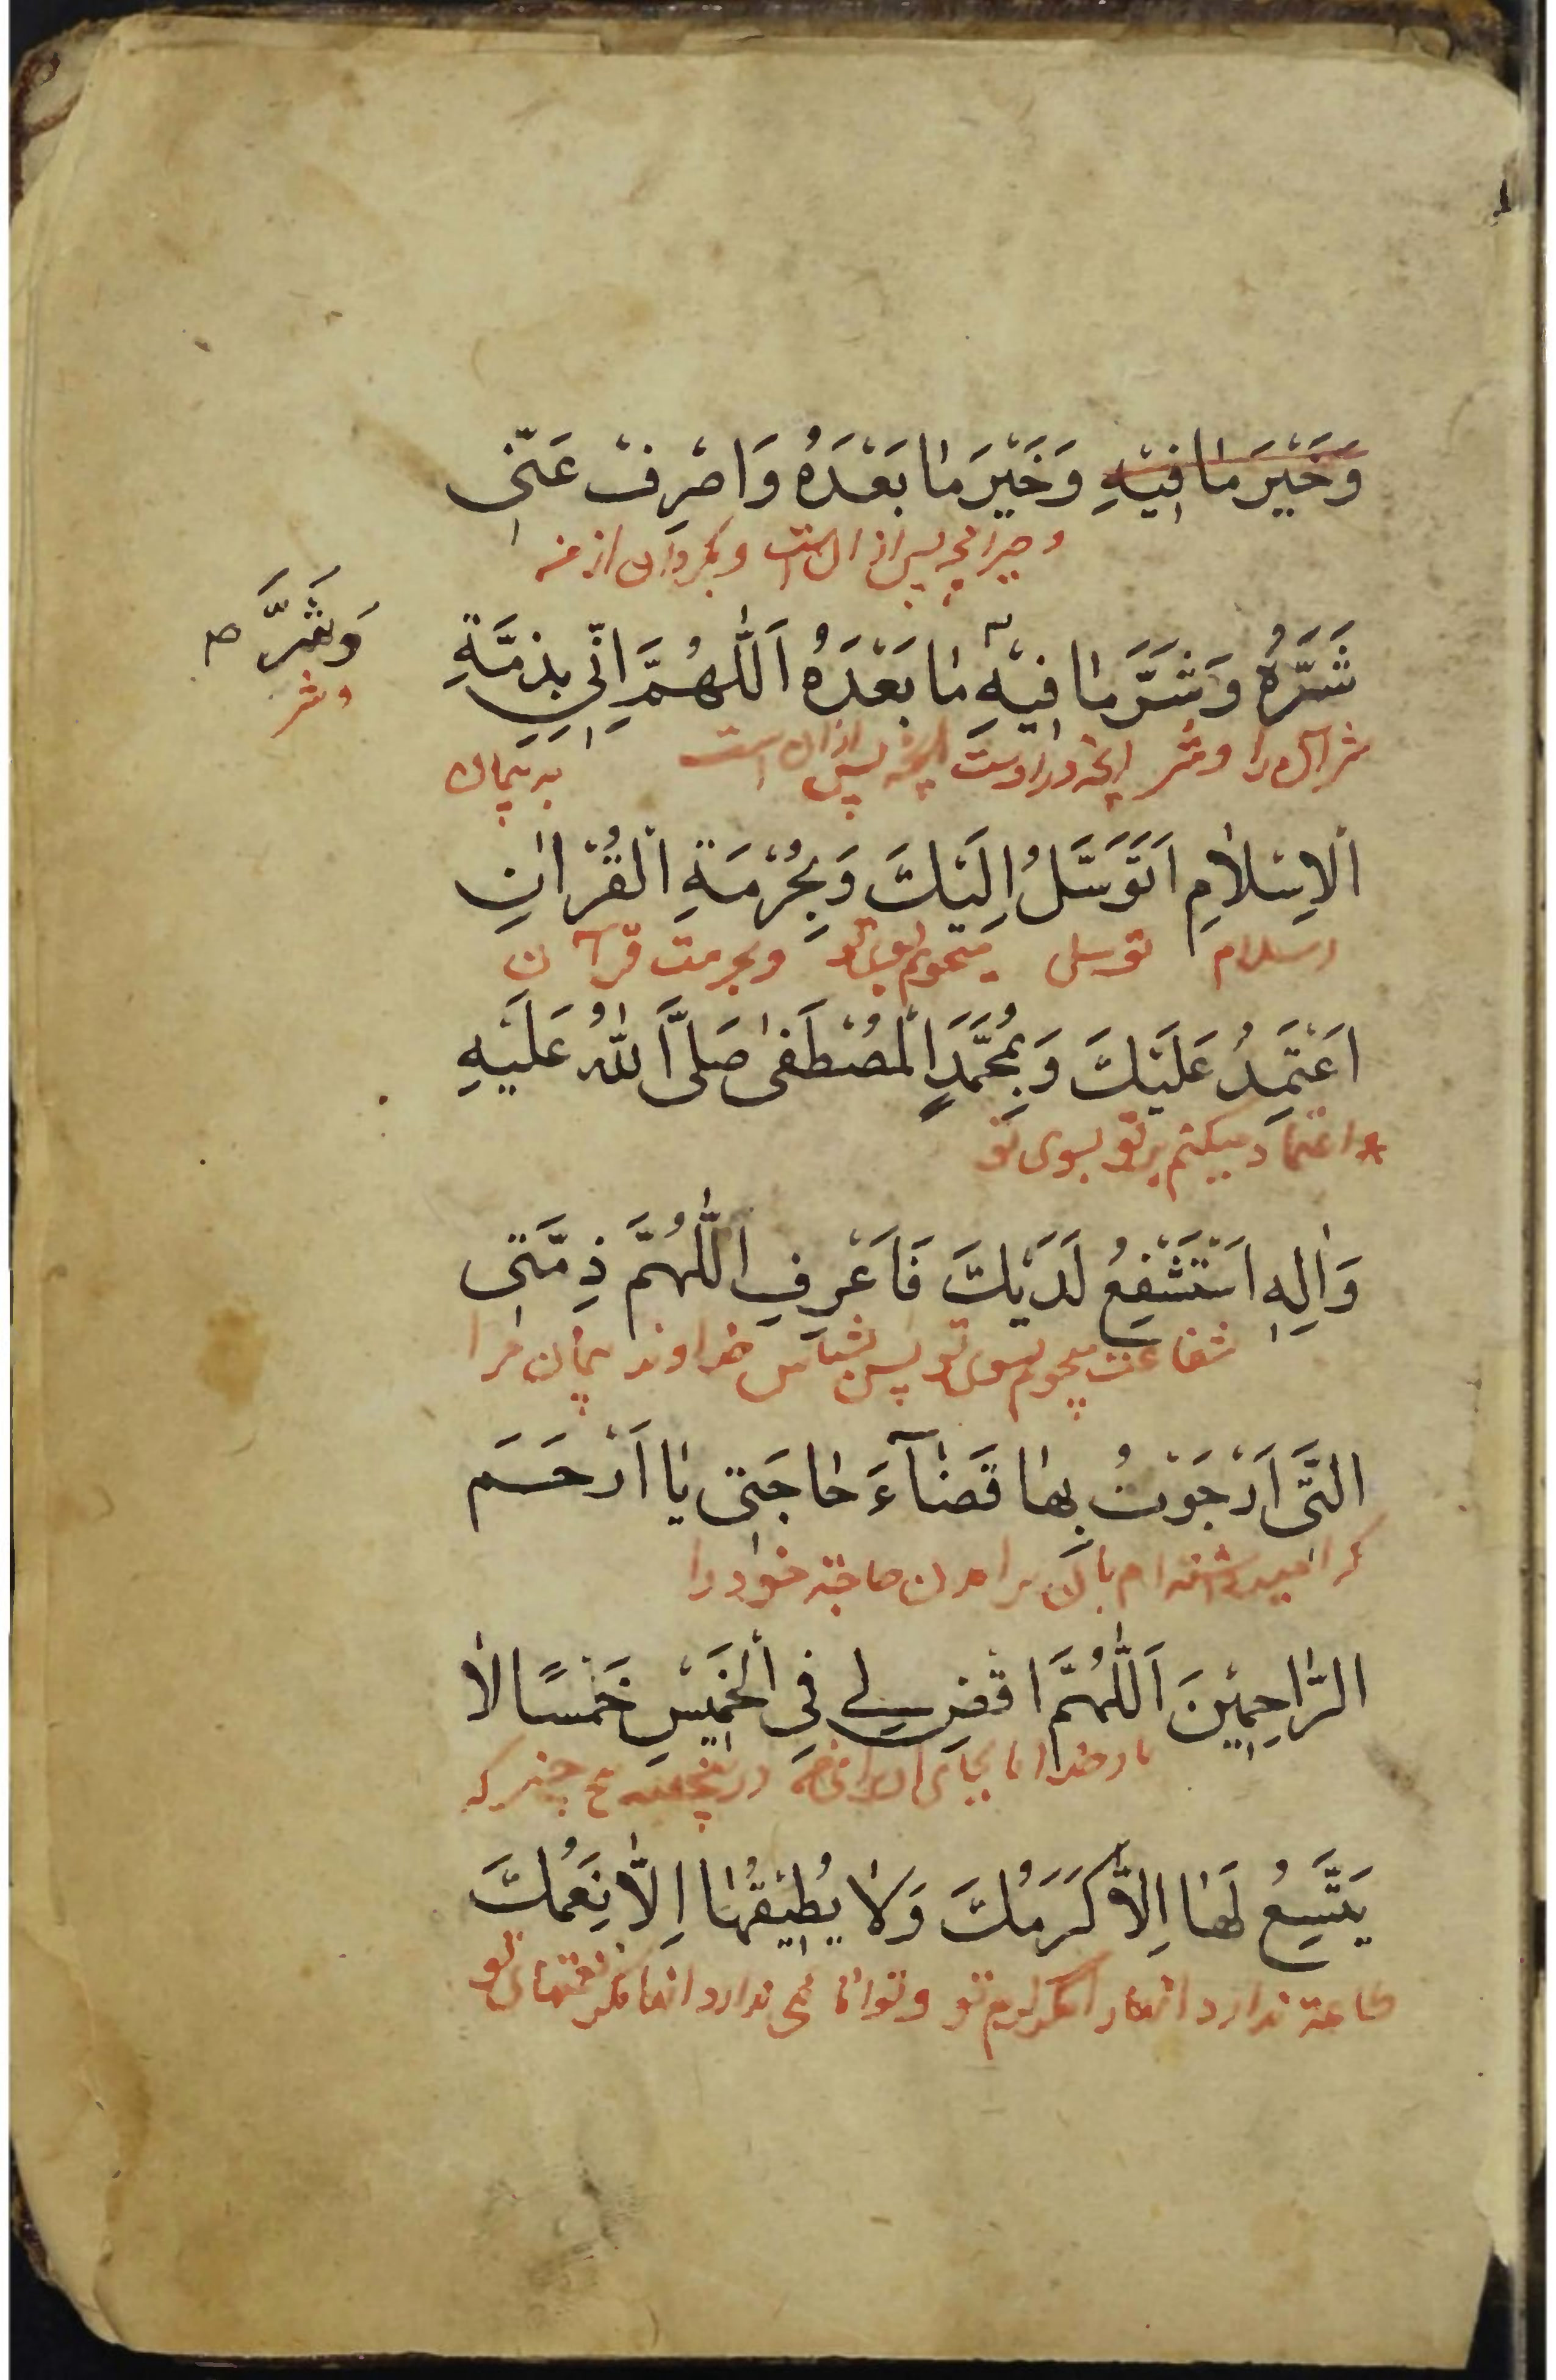 وَخَيْرَ مٰا فِيْهِ وَخَيْرَ مٰا بَعْدَهُ وَاصْرِفْ عَنّٖى
و خیر انچه پس از ان است و بگردان از من
شَرَّهُ وَشَرَّ مٰا فِيْهِ مٰا بَعْدَهُ اَللّٰهُمَّ اِنّٖي بِذِمَّةِ
وَشَرَّ صح
وشر
شر آن را و شر انچه در اوست انچه پس از ان است به پیمان
الْاِسْلٰامِ اَتَوَسَّلُ اِلَيْكَ وَبِحُرْمَةِ الْقُرْاٰنِ
اسلام توسل میجویم بسوی تو و بحرمت قرآن
اَعْتَمِدُ عَلَيْكَ وَبِمُحَمَّدٍ الْمُصْطَفٰى صَلَّى اللّٰهُ عَلَيْهِ
اعتماد میکنم بر تو بسوی تو
وَاٰلِهٖ اَسْتَشْفِعُ لَدَيْكَ فَاَعْرِفِ اللّٰهُمَّ ذِمَّتٖى
شفاعت میجویم بسوی تو پس بشناس خداوندا پیمان مرا
الَّتٖى اَرْجَوْتُ بِهٰا قَضٰآءَ حٰاجَتٖى يٰا اَرْحَمَ
که امید داشته‌ام بان برامدن حاجة خود را
الرّٰاحِمِيْنَ اَللّٰهُمَّ اقْضِ لٖي فِي الْخَمِيْسِ خَمْسًا لٰا
بار خدایا بجای اور در پنجشنبه پنج چیز که
يَتَّسِعُ لَهٰا اِلّٰا كَرَمُكَ وَلٰا يُطِيْقُهٰا اِلّٰا نِعَمُكَ
طاقة ندارد انها را مگر کرم تو و توانائی ندارد انها مگر نعمتهای تو